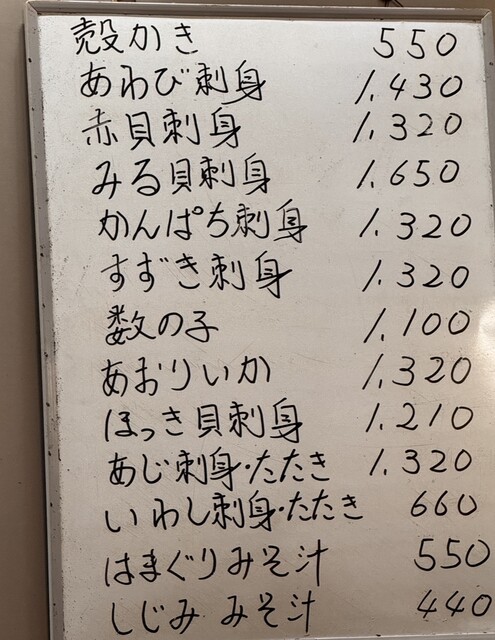 殻かき 550
あわび刺身 1.430
赤貝刺身 1.320
みる貝刺身 1.650
かんぱち刺身 1.320
すずき刺身 1.320
数の子 1.100
あおりいか 1.320
ほっき貝刺身 1.210
あじ刺身・たたき 1.320
いわし刺身・たたき 660
はまぐりみそ汁 550
しじみ みそ汁 440